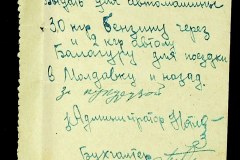 Выдать для автомашины
30 кгр бензину через
и 2 кгр автом
Балагуру для поездки
в Молдавку и назад.
за кукурузой
Администратор
Бухгалтер